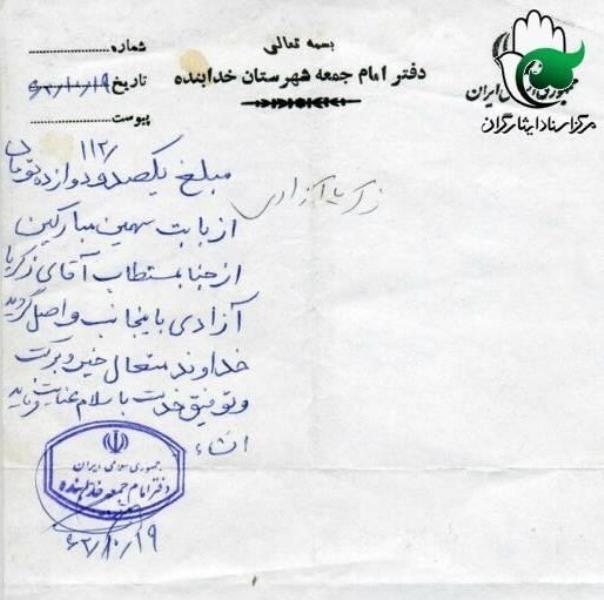 بسمه تعالی
دفتر امام جمعه شهرستان خدابنده
شماره
تاریخ ۶۲/۱۰/۱۹
پیوست
جمهوری اسلامی ایران
مرکز اسناد ایثارگران
۱۱۲/
مبلغ یکصد و دوازده تومان
زکریا آزادی
از بابت سهمین مبارکین
از جناب مستطاب آقای زکریا
آزادی باینجانب واصل گردید
خداوند متعال خیر و برکت
و توفیق خدمت باسلام عنایت فرماید
انشاء
جمهوری اسلامی ایران
دفتر امام جمعه خدابنده
۶۲/۱۰/۱۹